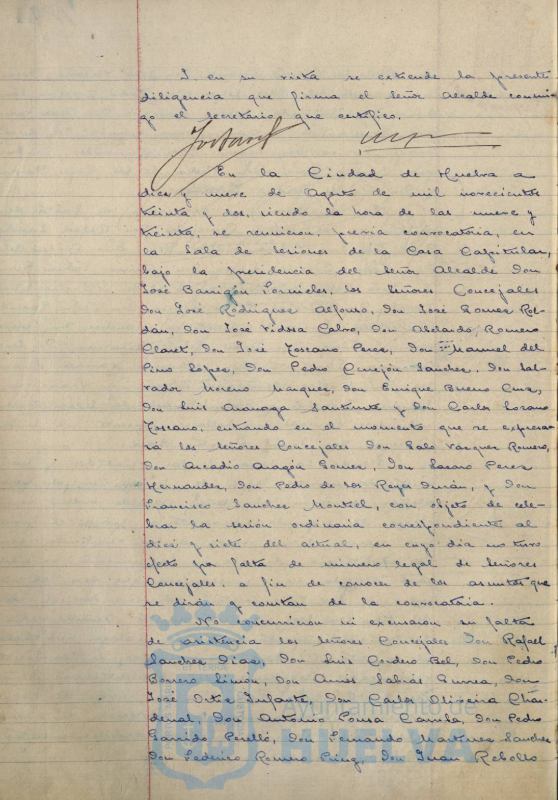 I en su vista se extiende la presente
diligencia que firma el Señor Alcalde conmi-
go el Secretario que certifico.
En la Ciudad de Huelva a
diez y nueve de Agosto de mil novecientos
treinta y dos, siendo la hora de las nueve y
treinta, se reunieron, previa convocatoria, en
la Sala de Sesiones de la Casa Capitular,
bajo la presidencia del Señor Alcalde don
José Barrigón Fornieles, los Señores Concejales
don José Rodriguez Alfonso, don José Gomez Rol-
dán, don José Vidosa Calvo, don Abelardo Romero
Claret, don José Toscano Perez, don Manuel del
Pino Lopez, don Pedro Cerejón Sanchez, don Sal-
vador Moreno Marquez, don Enrique Bueno Cruz,
don Luis y don Carlos Lozano
Toscano, entrando en el momento que se expresa-
rá los Señores Concejales don Galo Vazquez Romero,
don Arcadio Aragón Gomez, don Lazaro Perez
Hernandez, don Pedro de los Reyes Durán, y don
Francisco Sanchez Montiel, con objeto de cele-
brar la sesión ordinaria correspondiente al
diez y siete del actual, en cuyo día no tuvo
efecto por falta de número legal de Señores
Concejales, a fin de conocer de los asuntos que
se dirán y constan de la convocatoria.
No concurrieron ni excusaron su falta
de asistencia los Señores Concejales don Rafael
Sanchez Diaz, don Luis Cordero Bel, don Pedro
Borrero Limón, don Amós Sabrás Gurrea, don
José Ortiz Infante, don Carlos Oliveira Chan-
denal, don Antonio Pousa Camba, don Pedro
Garrido Perelló, don Fernando Martinez Sanchez
don Federico Romero don Juan Rebollo
Ayuntamiento de
HUELVA